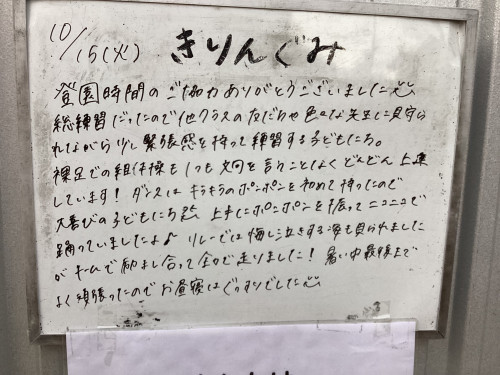 10/15(火) きりんぐみ
登園時間のご協力ありがとうございました
総練習だったので他クラスの友だちや色々な先生に見守ら
れながら少し緊張感を持って練習する子どもたち。
裸足での組体操もいつも文句を言うことなくどんどん上達
しています！ダンスはキラキラのポンポンを初めて持ったので
大喜びの子どもたち 上手にポンポンを振ってニコニコで
踊っていましたよ♪ リレーでは悔し泣きする姿も見られました
がチームで励まし合って全力で走りました！暑い中最後まで
よく頑張ったのでお昼寝はぐっすりでした